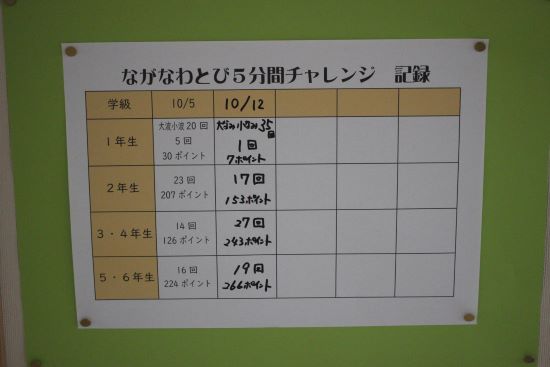 ながなわとび5分間チャレンジ　記録
学級 10/5 10/12
1年生 大波小波20回 5回 30ポイント 大なみ小なみ35回 1回 7ポイント
2年生 23回 207ポイント 17回 153ポイント
3・4年生 14回 126ポイント 27回 243ポイント
5・6年生 16回 224ポイント 19回 266ポイント